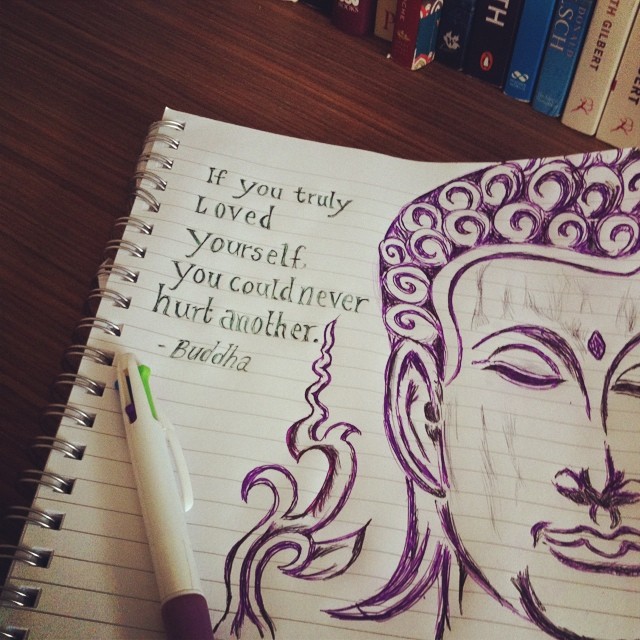 If you truly
Loved
yourself,
you could never
hurt another.
- Buddha
TH
SCH
TH GILBERT